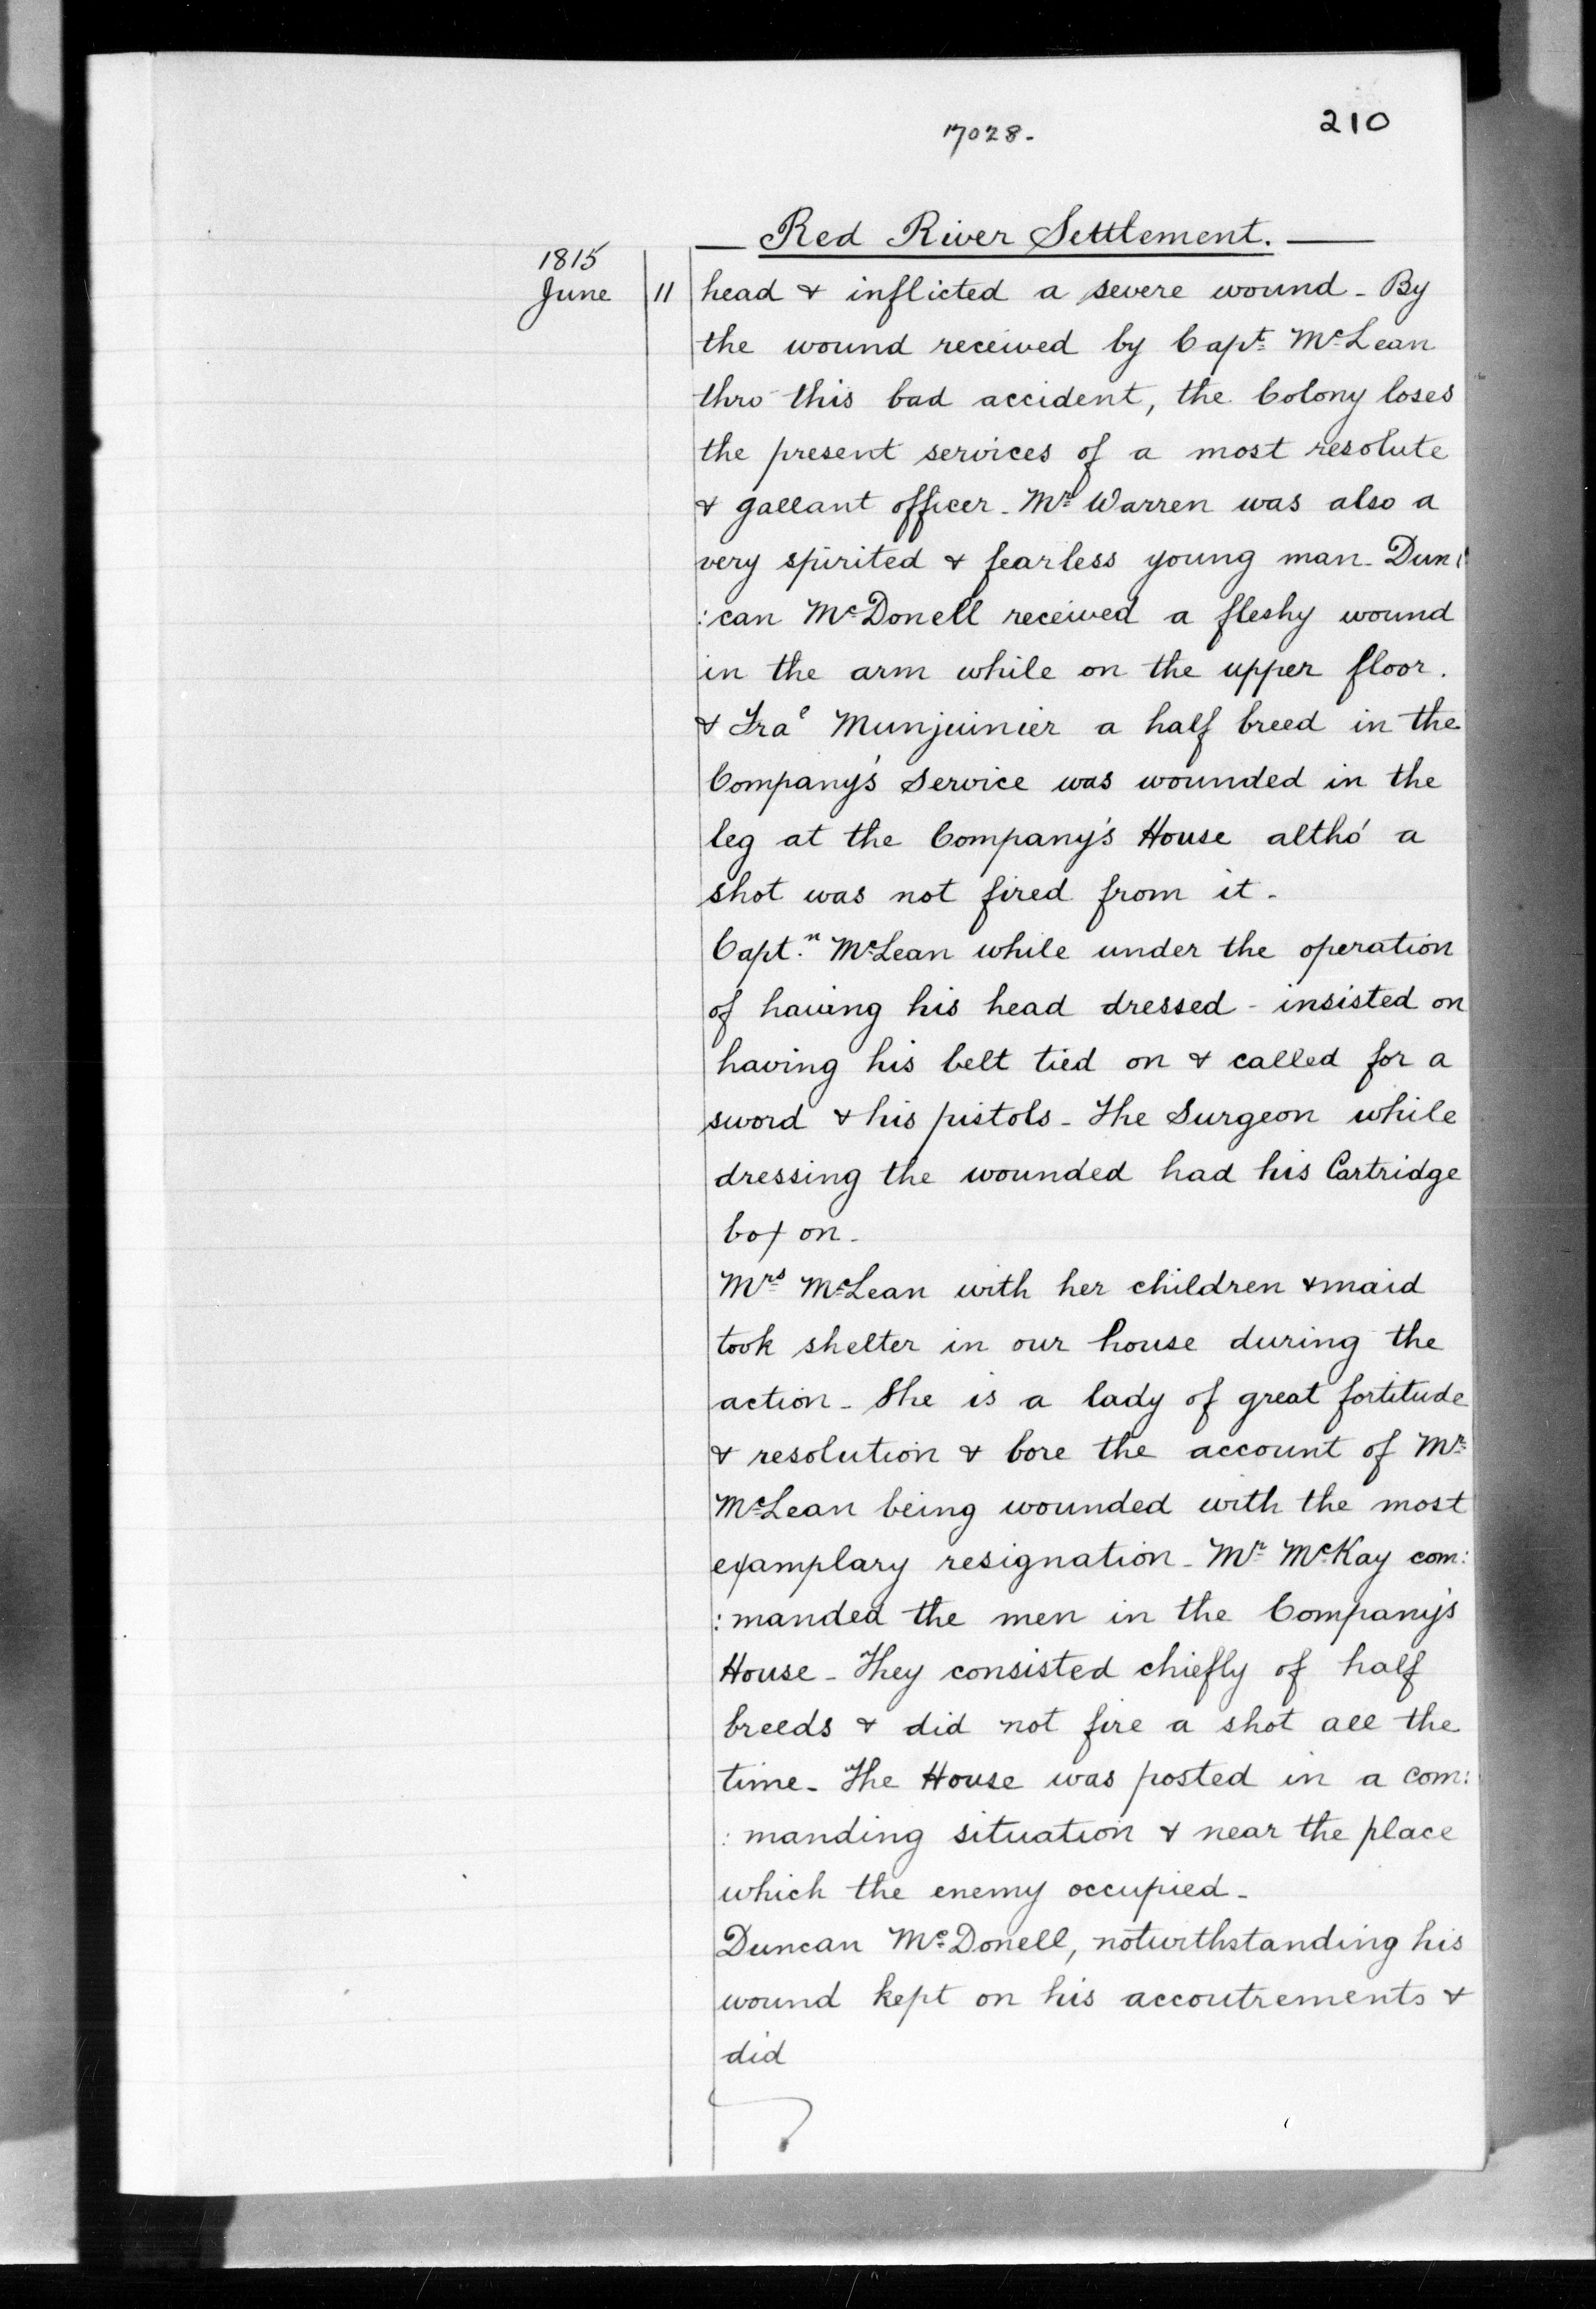 17028.
210
Red River Settlement.
1815
June 11 head & inflicted a severe wound - By
the wound received by Capt. McLean
thro this bad accident, the Colony loses
the present services of a most resolute
& gallant officer - Mr. Warren was also a
very spirited & fearless young man - Dun:
:can McDonell received a fleshy wound
in the arm while on the upper floor.
& Frae Munjuinier a half breed in the
Company's Service was wounded in the
leg at the Company's House altho' a
shot was not fired from it -
Capt.n McLean while under the operation
of having his head dressed - insisted on
having his belt tied on & called for a
sword & his pistols - The Surgeon while
dressing the wounded had his Cartridge
box on -
Mrs McLean with her children & maid
took shelter in our house during the
action - She is a lady of great fortitude
& resolution & bore the account of Mr.
McLean being wounded with the most
examplary resignation - Mr. McKay com:
:manded the men in the Company's
House - They consisted chiefly of half
breeds & did not fire a shot all the
time - The House was posted in a com:
:manding situation & near the place
which the enemy occupied -
Duncan McDonell, notwithstanding his
wound kept on his accoutrements &
did